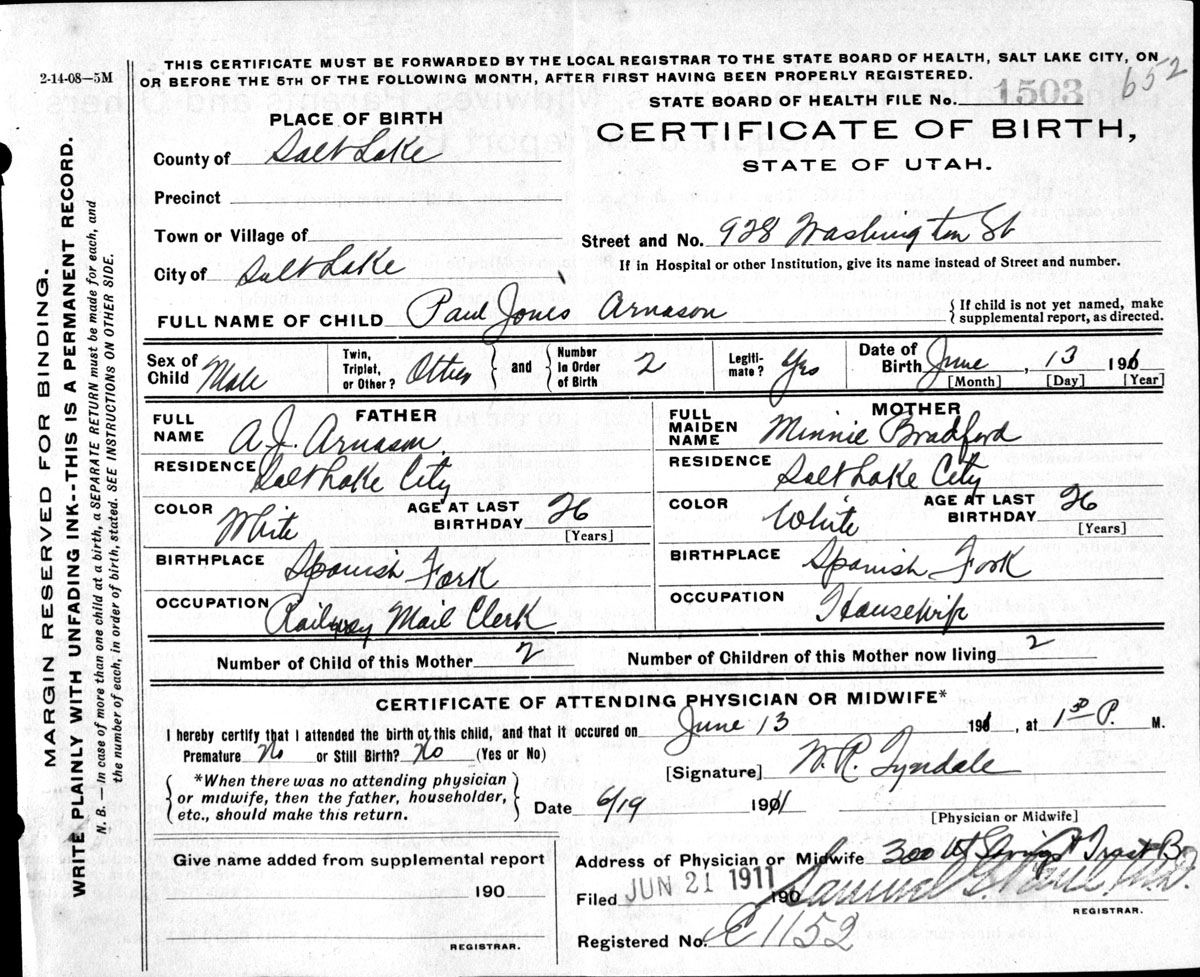 2-14-08—5M
THIS CERTIFICATE MUST BE FORWARDED BY THE LOCAL REGISTRAR TO THE STATE BOARD OF HEALTH, SALT LAKE CITY, ON
OR BEFORE THE 5TH OF THE FOLLOWING MONTH, AFTER FIRST HAVING BEEN PROPERLY REGISTERED.
652
STATE BOARD OF HEALTH FILE No. 1503
PLACE OF BIRTH
CERTIFICATE OF BIRTH,
STATE OF UTAH.
County of Salt Lake
Precinct
Town or Village of
Street and No. 928 Washington St
City of Salt Lake
If in Hospital or other Institution, give its name instead of Street and number.
FULL NAME OF CHILD Paul Jones Arnason
{If child is not yet named, make
supplemental report, as directed.
Sex of Child Male
Twin, Triplet, or Other? Other
and
Number in Order of Birth 2
Legiti-mate? Yes
Date of Birth June, 13 1911
[Month] [Day] [Year]
FATHER
FULL NAME A. J. Arnason
RESIDENCE Salt Lake City
COLOR White AGE AT LAST BIRTHDAY 26
[Years]
BIRTHPLACE Spanish Fork
OCCUPATION Railway Mail Clerk
MOTHER
FULL MAIDEN NAME Minnie Bradford
RESIDENCE Salt Lake City
COLOR White AGE AT LAST BIRTHDAY 26
[Years]
BIRTHPLACE Spanish Fork
OCCUPATION Housewife
Number of Child of this Mother 2 Number of Children of this Mother now living 2
CERTIFICATE OF ATTENDING PHYSICIAN OR MIDWIFE*
I hereby certify that I attended the birth of this child, and that it occured on June 13 1911, at 1 30 P. M.
Premature No or Still Birth? No (Yes or No)
{*When there was no attending physician
or midwife, then the father, householder,
etc., should make this return.}
[Signature] W. R. Tyndale
Date 6/19 1911
[Physician or Midwife]
Give name added from supplemental report
190
REGISTRAR.
Address of Physician or Midwife 300 Trust B
Filed JUN 21 1911 190 Samuel M.D.
REGISTRAR.
Registered No. E1152
MARGIN RESERVED FOR BINDING.
WRITE PLAINLY WITH UNFADING INK--THIS IS A PERMANENT RECORD.
N. B.—In case of more than one child at a birth, a SEPARATE RETURN must be made for each, and
the number of each, in order of birth, stated. SEE INSTRUCTIONS ON OTHER SIDE.